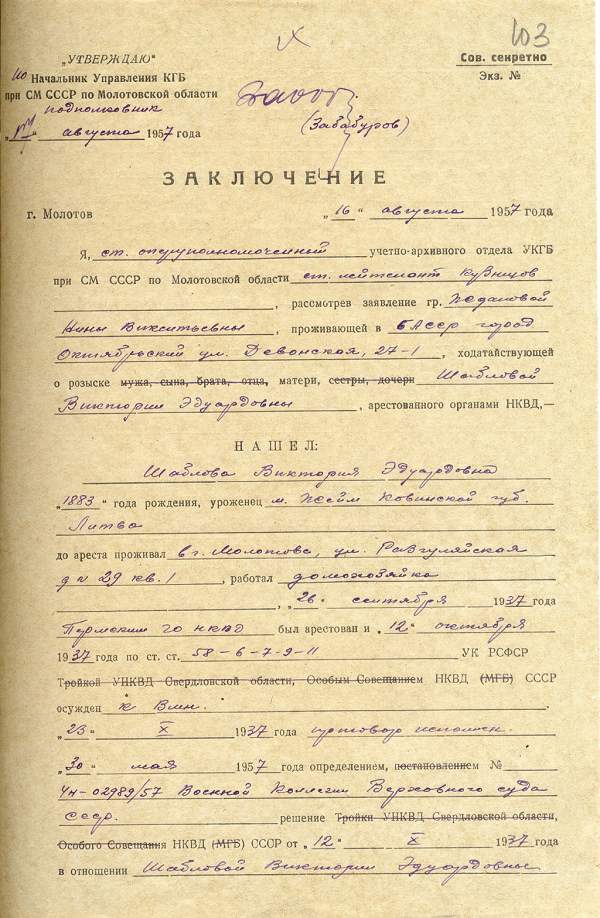 103
„УТВЕРЖДАЮ"
Сов. секретно
Экз. №
Начальник Управления КГБ
при СМ СССР по Молотовской области
подполковник
(Забабуров)
августа 1957 года
ЗАКЛЮЧЕНИЕ
г. Молотов „16" августа 1957 года
Я, ст. оперуполномоченный учетно-архивного отдела УКГБ
при СМ СССР по Молотовской области ст. лейтенант Кузнецов
, рассмотрев заявление гр.
Нины Викентьевны, проживающей в БАССР город
Октябрьский ул. Девонская, 27-1, ходатайствующей
о розыске мужа, сына, брата, отца, матери, сестры, дочери Шабловой
Виктории Эдуардовны, арестованного органами НКВД,—
НАШЕЛ:
Шаблова Виктория Эдуардовна
„1883" года рождения, уроженец м. Жейм Ковинской губ.
Литва
до ареста проживал в г. Молотове, ул. Разгуляйская
д № 29 кв. 1, работал домохозяйка
, „26" сентября 1937 года
Пермским го НКВД был арестован и „12" октября
1937 года по ст. ст. 58-6-7-9-11 УК РСФСР
Тройкой УНКВД Свердловской области, Особым Совещанием НКВД (МГБ) СССР
осужден к Вмн.
„23" X 1937 года приговор исполнен.
„30" мая 1957 года определением, постановлением №
4н-02989/57 Военной Коллегии Верховного суда
СССР. решение Тройки УНКВД Свердловской области,
Особого Совещания НКВД (МГБ) СССР от „12" X 1937 года
в отношении Шабловой Виктории Эдуардовны